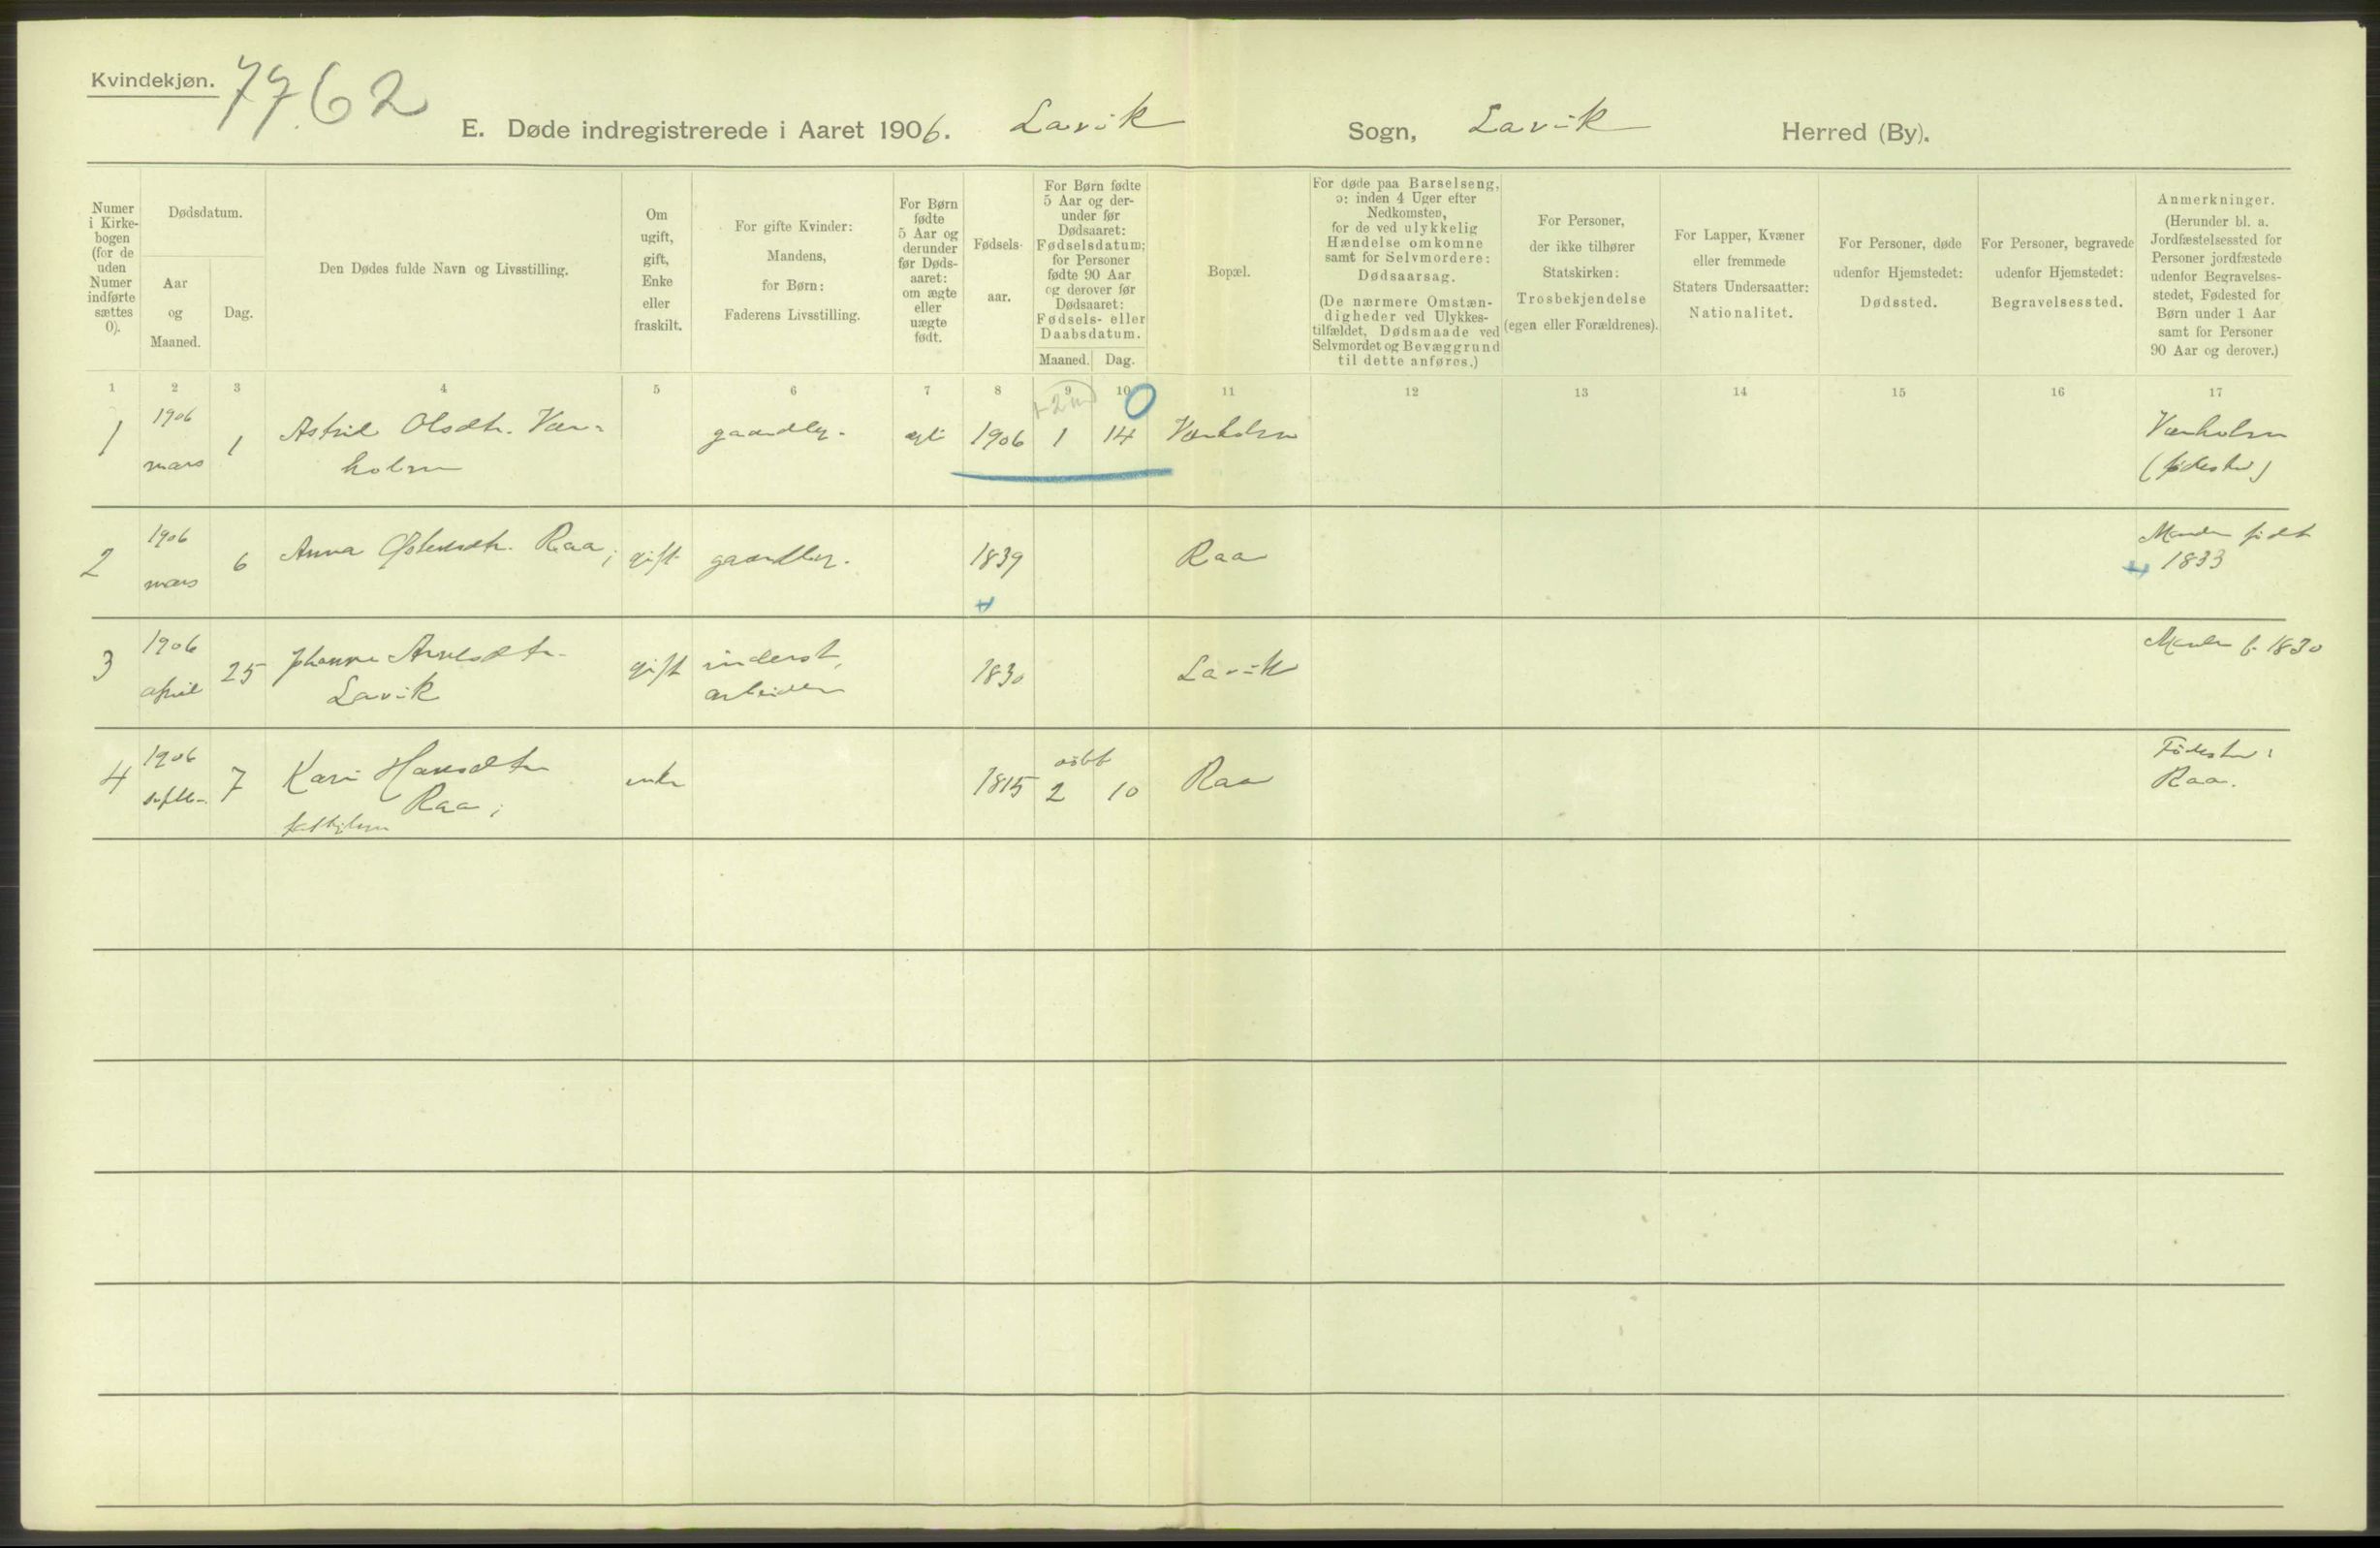 Kvindekjøn.
7762
E. Døde indregistrerede i Aaret 1906. Lavik Sogn, Lavik Herred (By).
Numer
i Kirke-
bogen
(for de
uden
Numer
indførte
sættes
0).
Dødsdatum.
Aar
og
Maaned.
Dag.
Den Dødes fulde Navn og Livsstilling.
Om
ugift,
gift,
Enke
eller
fraskilt.
For gifte Kvinder:
Mandens,
for Børn:
Faderens Livsstilling.
For Børn
fødte
5 Aar og
derunder
før Døds-
aaret:
om ægte
eller
uægte
født.
Fødsels-
aar.
For Børn fødte
5 Aar og der-
under før
Dødsaaret:
Fødselsdatum;
for Personer
fødte 90 Aar
og derover før
Dødsaaret:
Fødsels- eller
Daabsdatum.
Maaned. Dag.
Bopæl.
For døde paa Barselseng,
ɔ: inden 4 Uger efter
Nedkomsten,
for de ved ulykkelig
Hændelse omkomne
samt for Selvmordere:
Dødsaarsag.
(De nærmere Omstæn-
digheder ved Ulykkes-
tilfældet, Dødsmaade ved
Selvmordet og Bevæggrund
til dette anføres.)
For Personer,
der ikke tilhører
Statskirken:
Trosbekjendelse
(egen eller Forældrenes).
For Lapper, Kvæner
eller fremmede
Staters Undersaatter:
Nationalitet.
For Personer, døde
udenfor Hjemstedet:
Dødssted.
For Personer, begravede
udenfor Hjemstedet:
Begravelsessted.
Anmerkninger.
(Herunder bl. a.
Jordfæstelsessted for
Personer jordfæstede
udenfor Begravelses-
stedet, Fødested for
Børn under 1 Aar
samt for Personer
90 Aar og derover.)
1 2 3 4 5 6 7 8 9 10 11 12 13 14 15 16 17
0
1 1906 mars 1 Astrid Olsdtr. Vær-
holm
gaardbr. 1906 1 14 Værholm
Værholm
(fødested)
2 1906 mars 6 Anna Raa; gift gaardbr. 1839 Raa
Manden født
1833
3 1906 april 25 Johanne Arnesdtr.
Lavik
gift inderst,
arbeider
1830 Lavik
Manden f. 1830
4 1906 septbr. 7 Kari Hansdtr
Raa;
enke 1815 2 10 Raa
Fødested:
Raa.